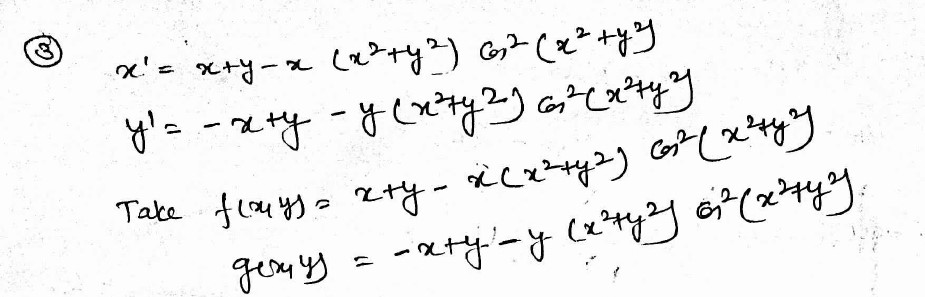 ③ x' = x+y-x (x²+y²) cos² (x²+y²)
y' = -x+y - y (x²+y²) cos² (x²+y²)
Take f(x,y) = x+y - x (x²+y²) cos² (x²+y²)
g(x,y) = -x+y - y (x²+y²) cos² (x²+y²)